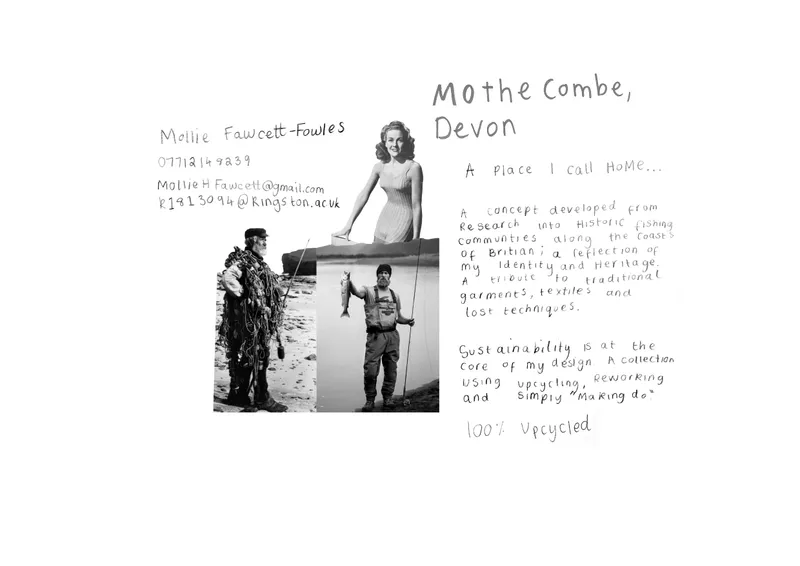 Mollie Fawcett-Fowles
07712149239
Mollie H Fawcett@gmail.com
K1813094@Kingston.ac.uk
Mothe Combe,
Devon
A Place I call HoMe...
A concept developed from
Research into Historic fishing
communties along the coasts
of Britian; a reflection of
my Identity and Heritage.
A tribute to traditional
garments, textiles and
lost techniques.
Sustainability is at the
core of my design. A collection
using upcycling, Reworking
and simply "Making do"
100% Upcycled